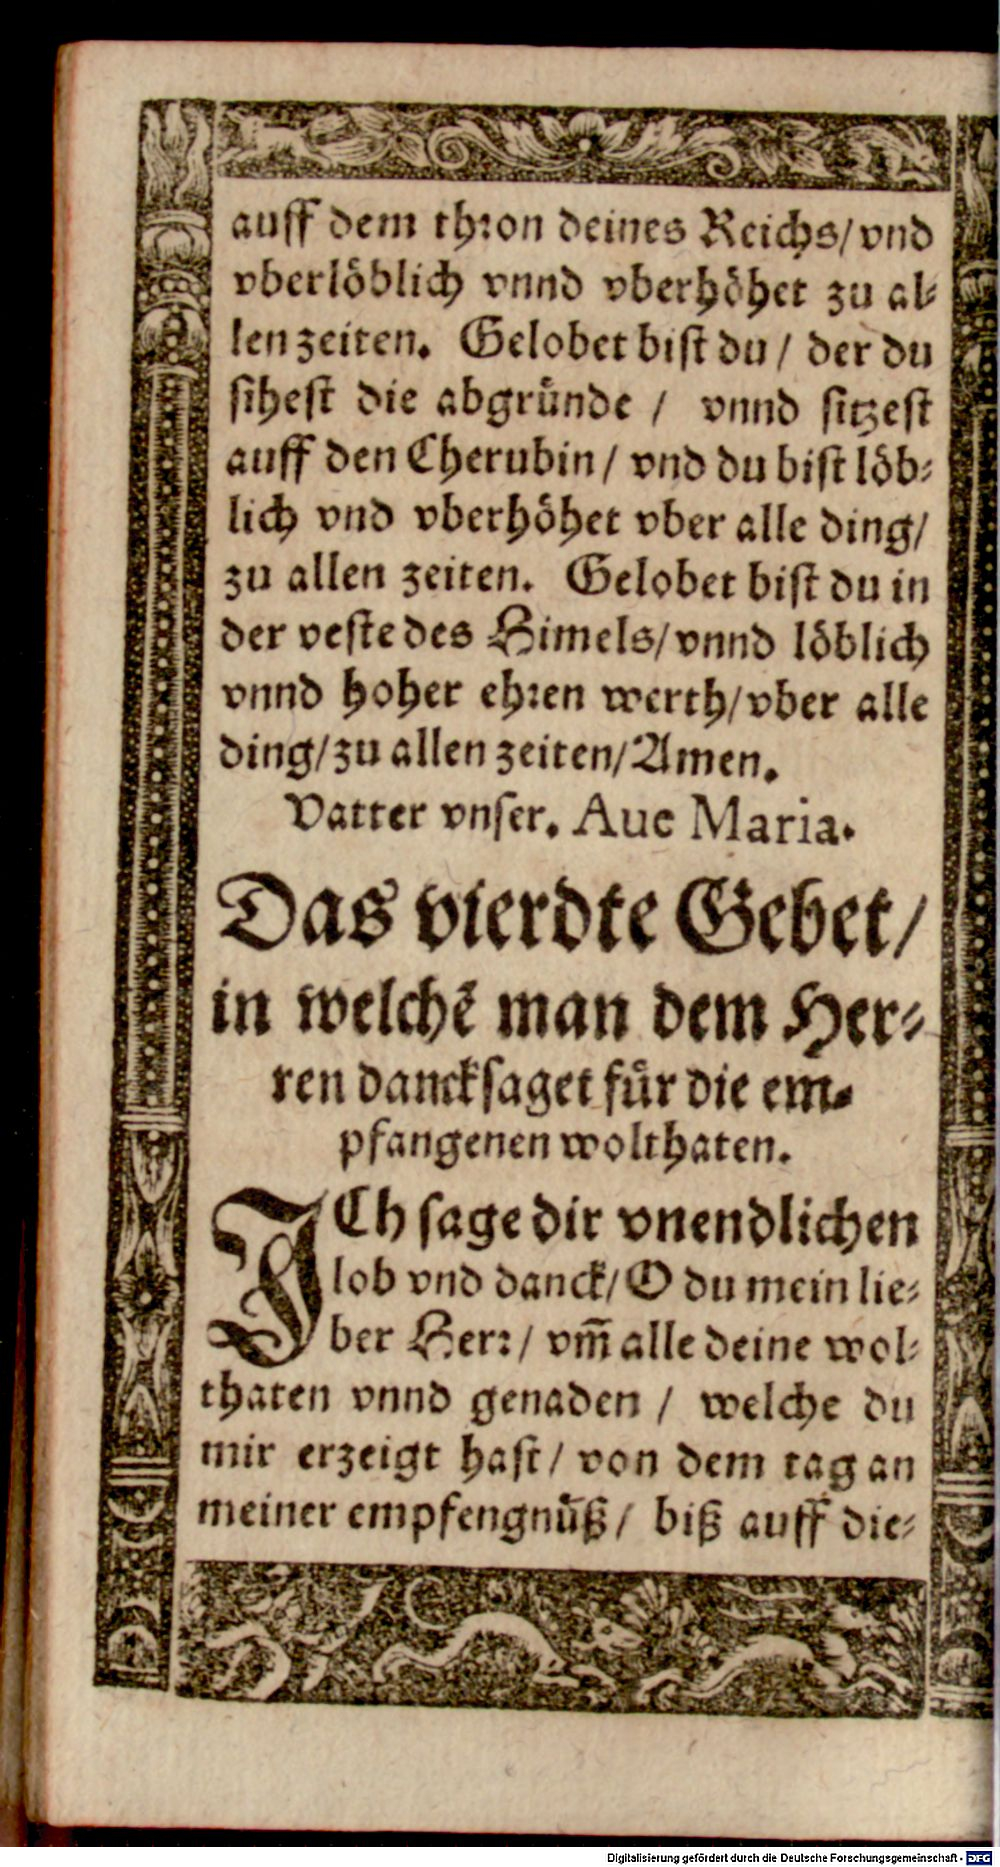 auff dem thron deines Reichs/ vnd
vberlöblich vnnd vberhöhet zu al-
len zeiten. Gelobet bist du / der du
sihest die abgründe / vnnd sitzest
auff den Cherubin / vnd du bist löb-
lich vnd vberhöhet vber alle ding/
zu allen zeiten. Gelobet bist du in
der veste des Himels/ vnnd löblich
vnnd hoher ehren werth/ vber alle
ding/ zu allen zeiten/ Amen.
Vatter vnser. Aue Maria.
Das vierdte Gebet/
in welchē man dem Her-
ren dancksaget für die em-
pfangenen wolthaten.
ICh sage dir vnendlichen
lob vnd danck/ O du mein lie-
ber Herr / vm̄ alle deine wol-
thaten vnnd genaden / welche du
mir erzeigt hast/ von dem tag an
meiner empfengnüß/ biß auff die-
Digitalisierung gefördert durch die Deutsche Forschungsgemeinschaft - DFG